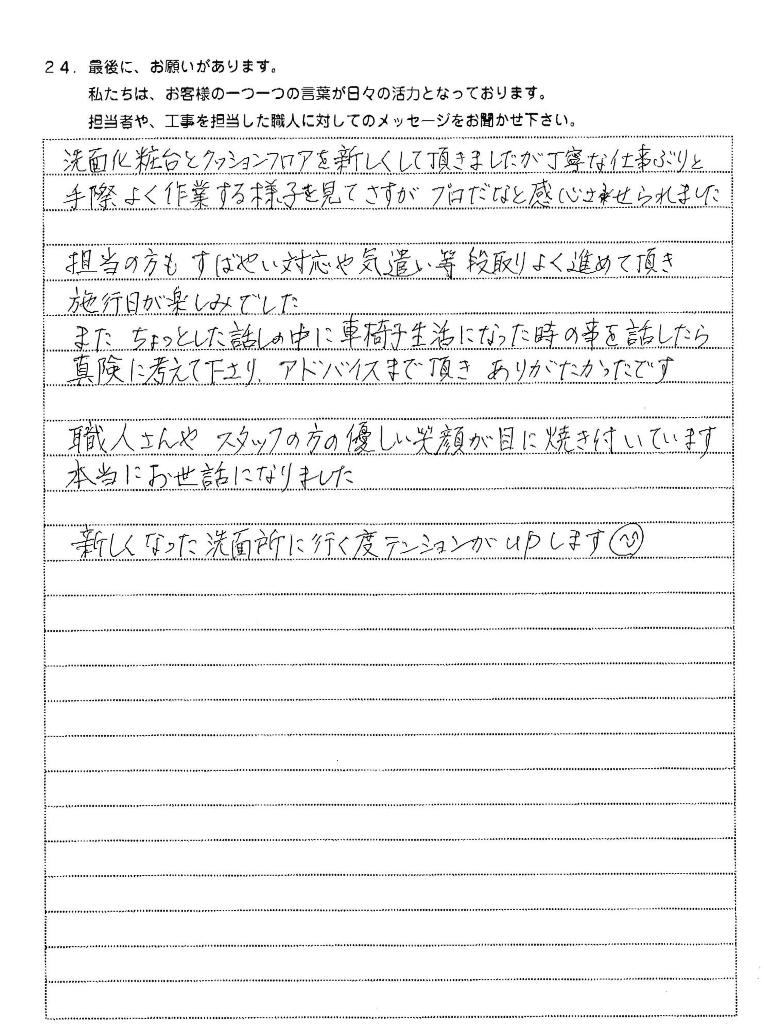 24. 最後に、お願いがあります。
私たちは、お客様の一つ一つの言葉が日々の活力となっております。
担当者や、工事を担当した職人に対してのメッセージをお聞かせ下さい。
洗面化粧台とクッションフロアを新しくして頂きましたが丁寧な仕事ぶりと
手際よく作業する様子を見てさすが プロだなと感心させられました
担当の方も すばやい対応や気遣い等段取りよく進めて頂き
施行日が楽しみでした
また ちょっとした話しの中に車椅子生活になった時の事を話したら
真険に考えて下さり、アドバイスまで頂き ありがたかったです
職人さんや スタッフの方の優しい笑顔が目に焼き付いています
本当にお世話になりました
新しくなった洗面所に行く度テンションがupします